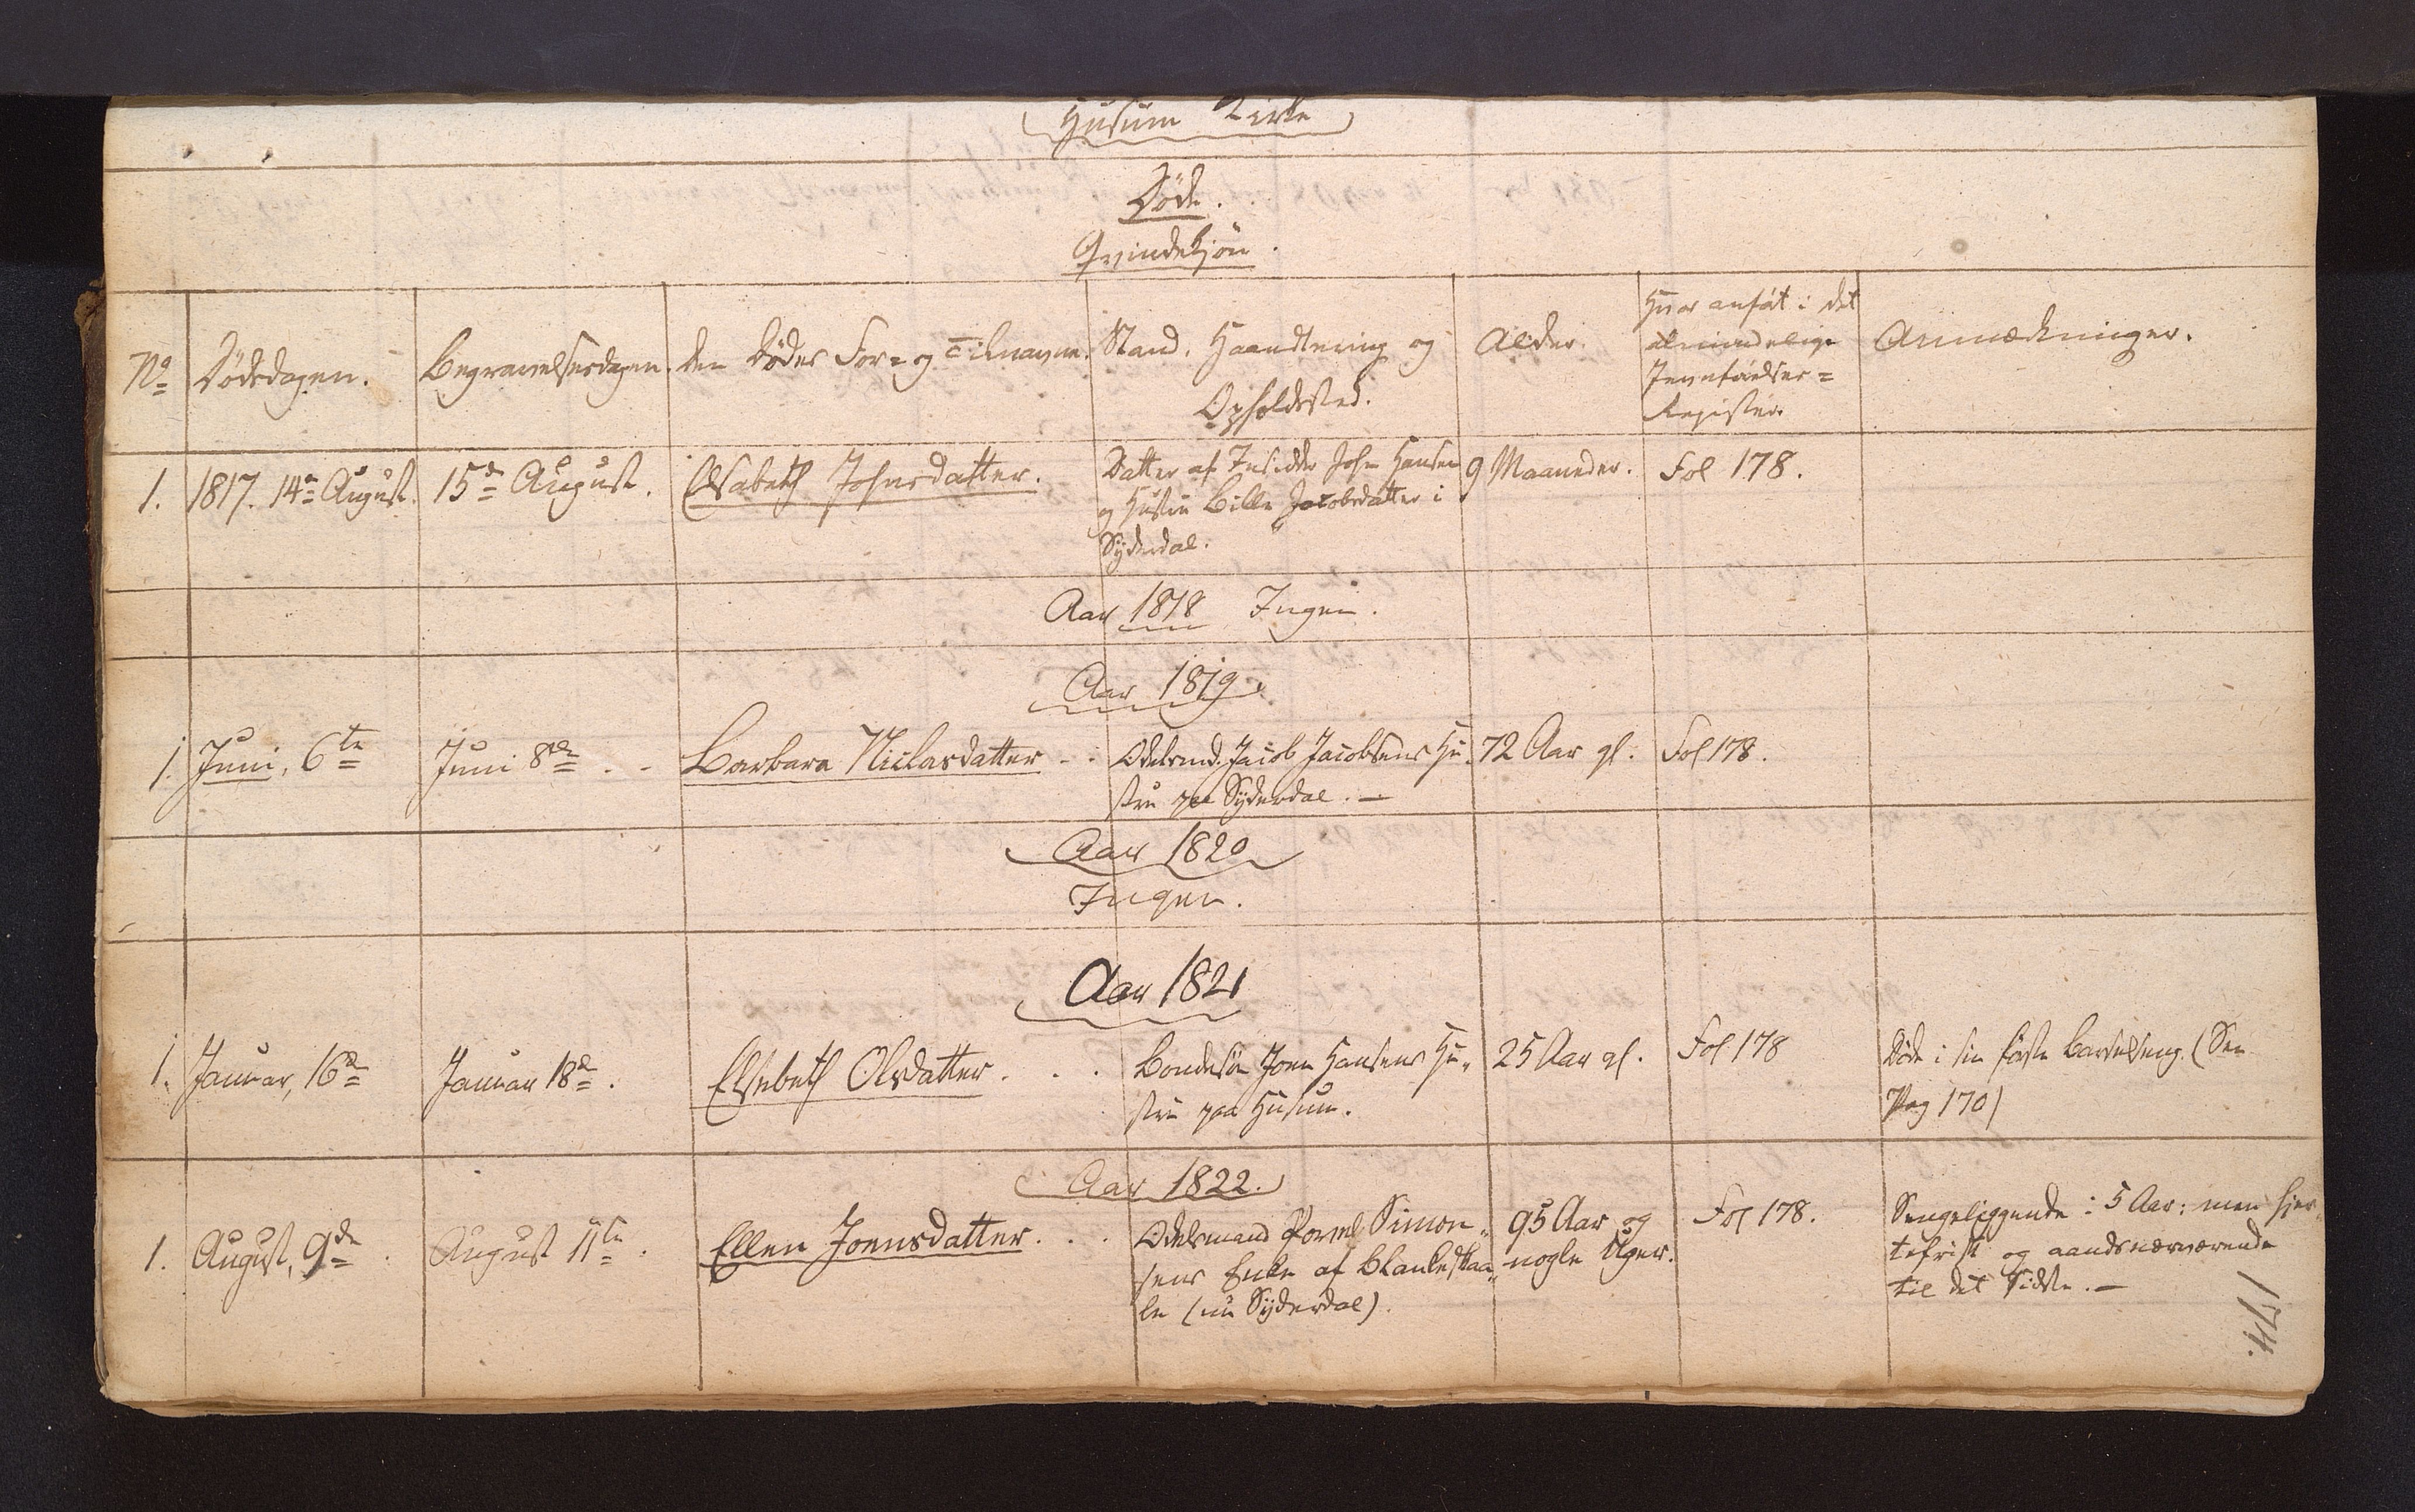 Husum Kirke
Döde.
Qvindekjön.
No
Dödsdagen.
Begravelsesdagen.
den Dödes For= og Tilnavne.
Stand, Haandtering og
Opholdsted.
Alder.
Hvor anfört i det
almindelige
Jevnförelses=
Register.
Anmærkninger.
1. 1817. 14de August. 15de August. Elsabeth Johnsdatter.
Datter af Insidder John Hansen
og Hustru Bille Jacobsdatter i
Syderdal.
9 Maaneder. Fol 178.
Aar 1818 Ingen.
Aar 1819.
1. Juni, 6te Juni 8de . . Barbara Niclasdatter . .
Odelsmd. Jacob Jacobsens Hu-
stru paa Syderdal. —
72 Aar gl. Fol 178.
Aar 1820
Ingen.
Aar 1821
1. Januar, 16de Januar 18de. Elsebeth Olsdatter . . .
Bondesön Joen Hansens Hu-
stru paa Husum.
25 Aar gl. Fol 178
Döde i sin förste Barselseng. (See
Pag 170)
Aar 1822.
1. August, 9de. August 11te. Ellen Joensdatter. . .
Odelsmand Povel Simon-
sens Enke af Blaaeskaa-
le (nu Syderdal).
95 Aar og
nogle Uger.
Fol 178.
Sengeliggende i 5 Aar; men hjer-
tefrisk og aandsnærværende
til det Sidste. —
174.